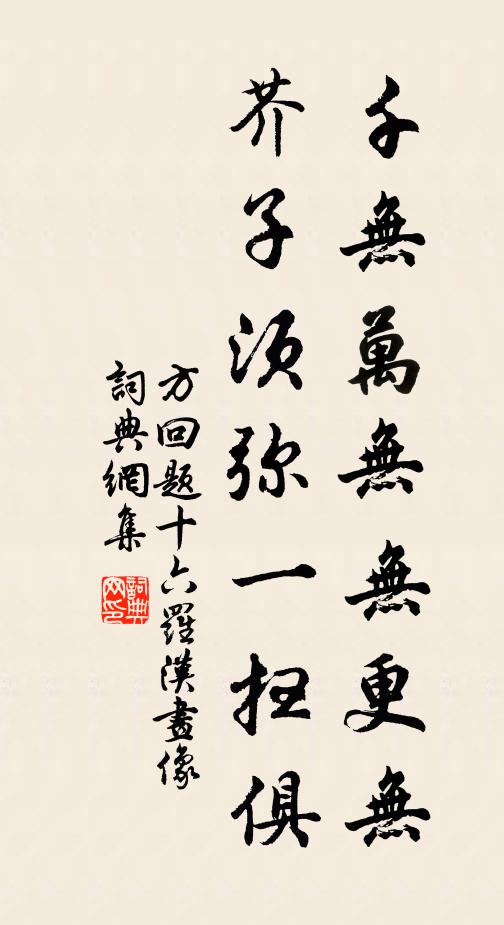 千無萬無無更無
芥子須弥一扭俱
方回題十六羅漢畫像
詞典網集
詞典網印